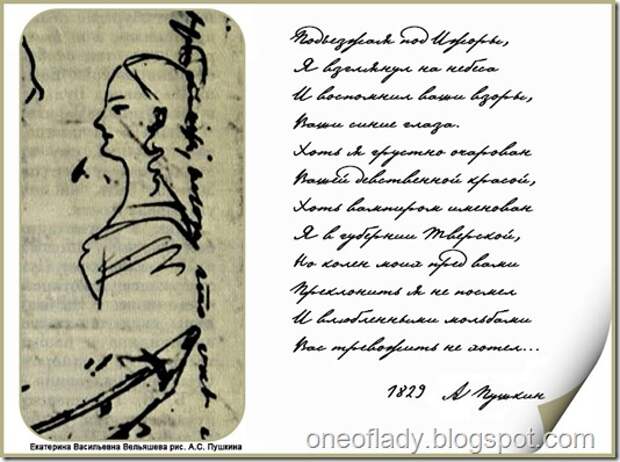 Подъезжая под Ижоры,
Я взглянул на небеса
И воспомнил ваши взоры,
Ваши синие глаза.
Хоть я грустно очарован
Вашей девственной красой,
Хоть вампиром именован
Я в губернии Тверской,
Но колен моих пред вами
Преклонить я не посмел
И влюбленными мольбами
Вас тревожить не хотел...
1829 А Пушкин
Екатерина Васильевна Вельяшева рис. А.С. Пушкина
oneoflady.blogspot.com